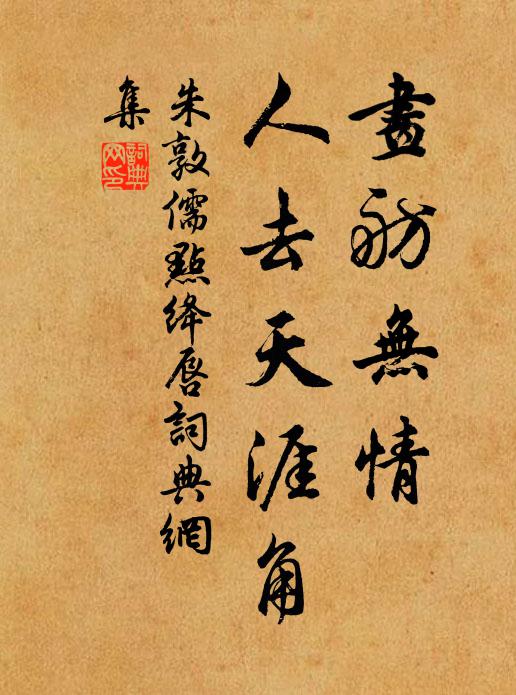 畫舫無情
人去天涯角
朱敦儒點絳唇詞典網
集
詞典網印